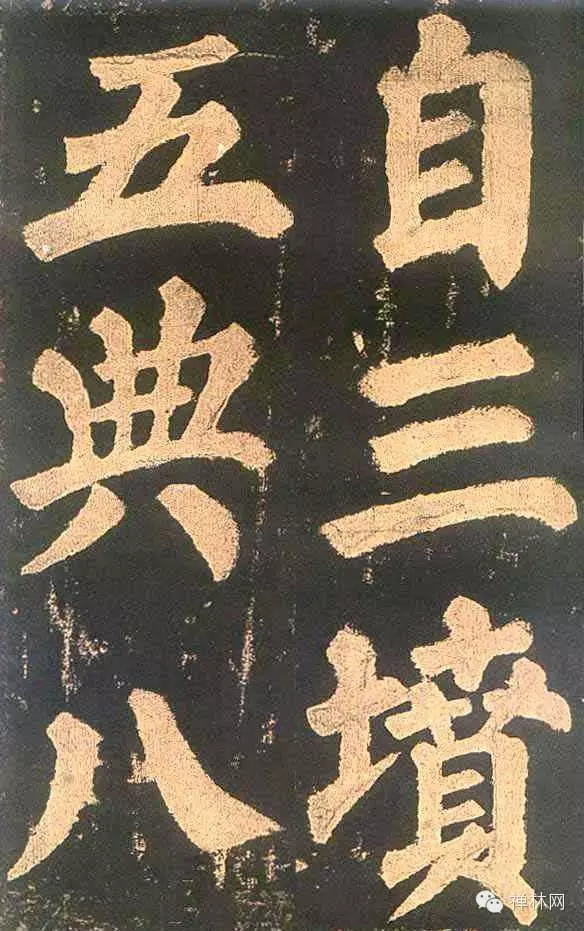 自三墳
五典八
禅林网